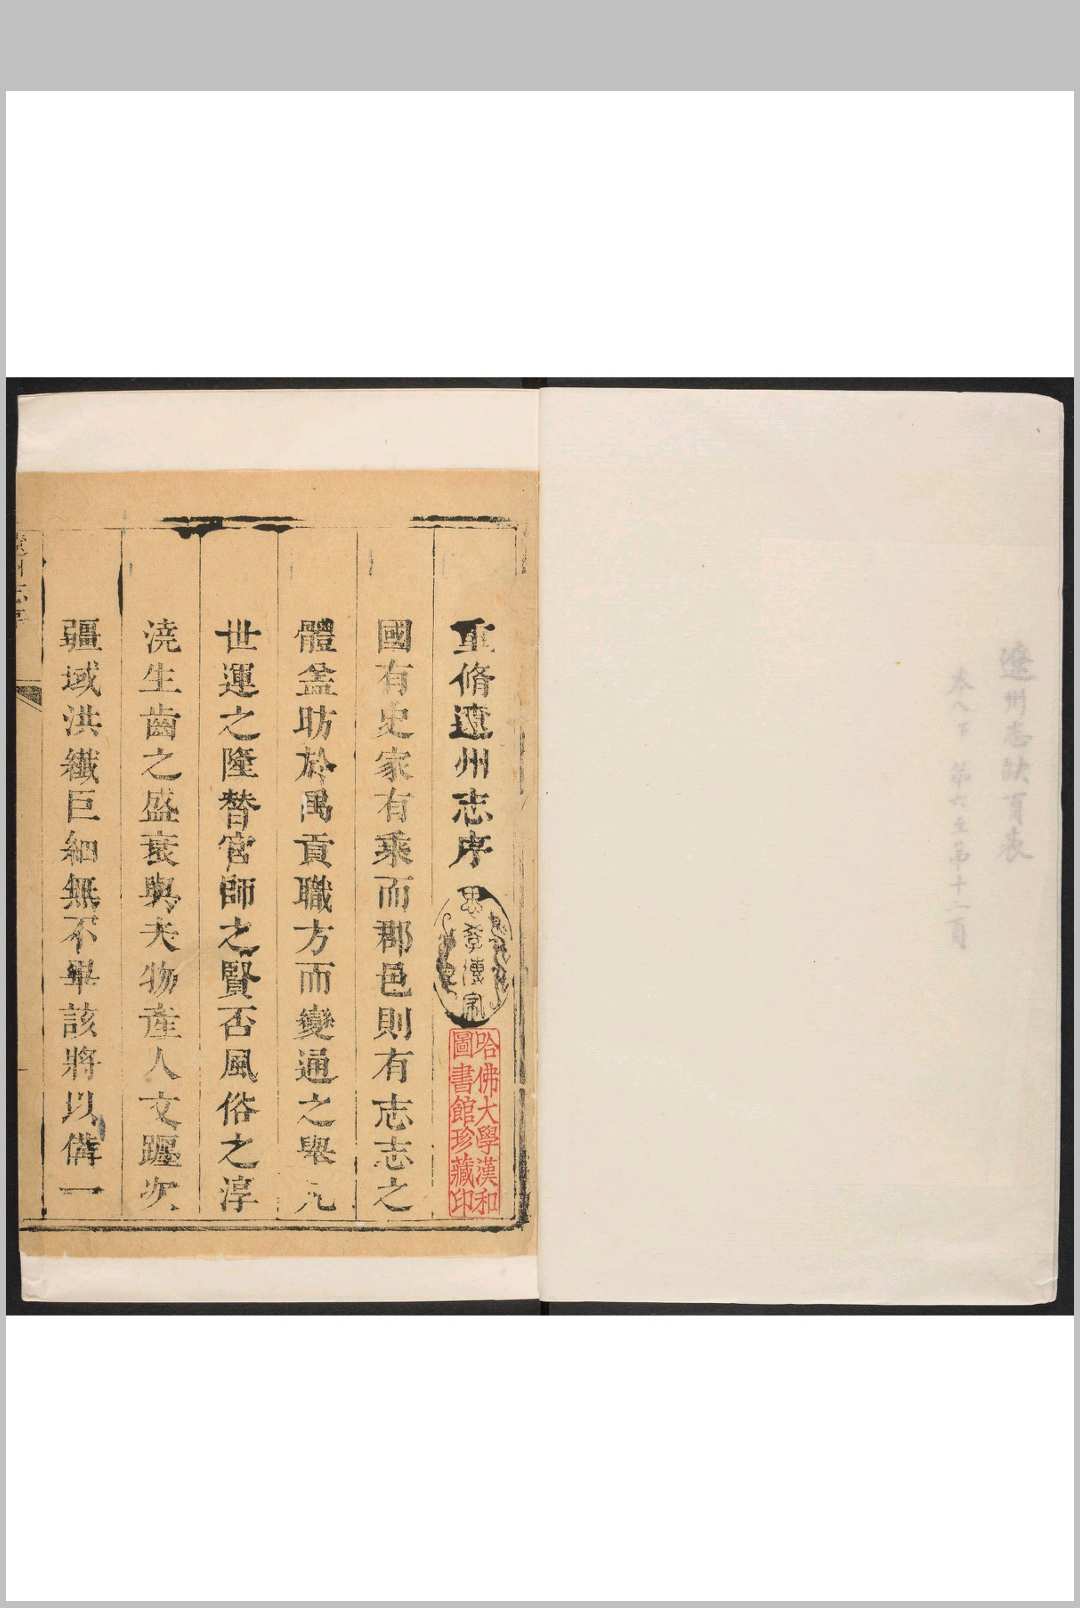 遼州志缺頁表
本八下 第六至第十二頁
重脩遼州志序
哈佛大學漢和
圖書館珍藏印
國有史家有乘而郡邑則有志志之
體葢昉於禹貢職方而變通之舉凡
世運之隆替官師之賢否風俗之淳
澆生齒之盛衰與夫物產人文躔次
疆域洪纖巨細無不畢該將以備一